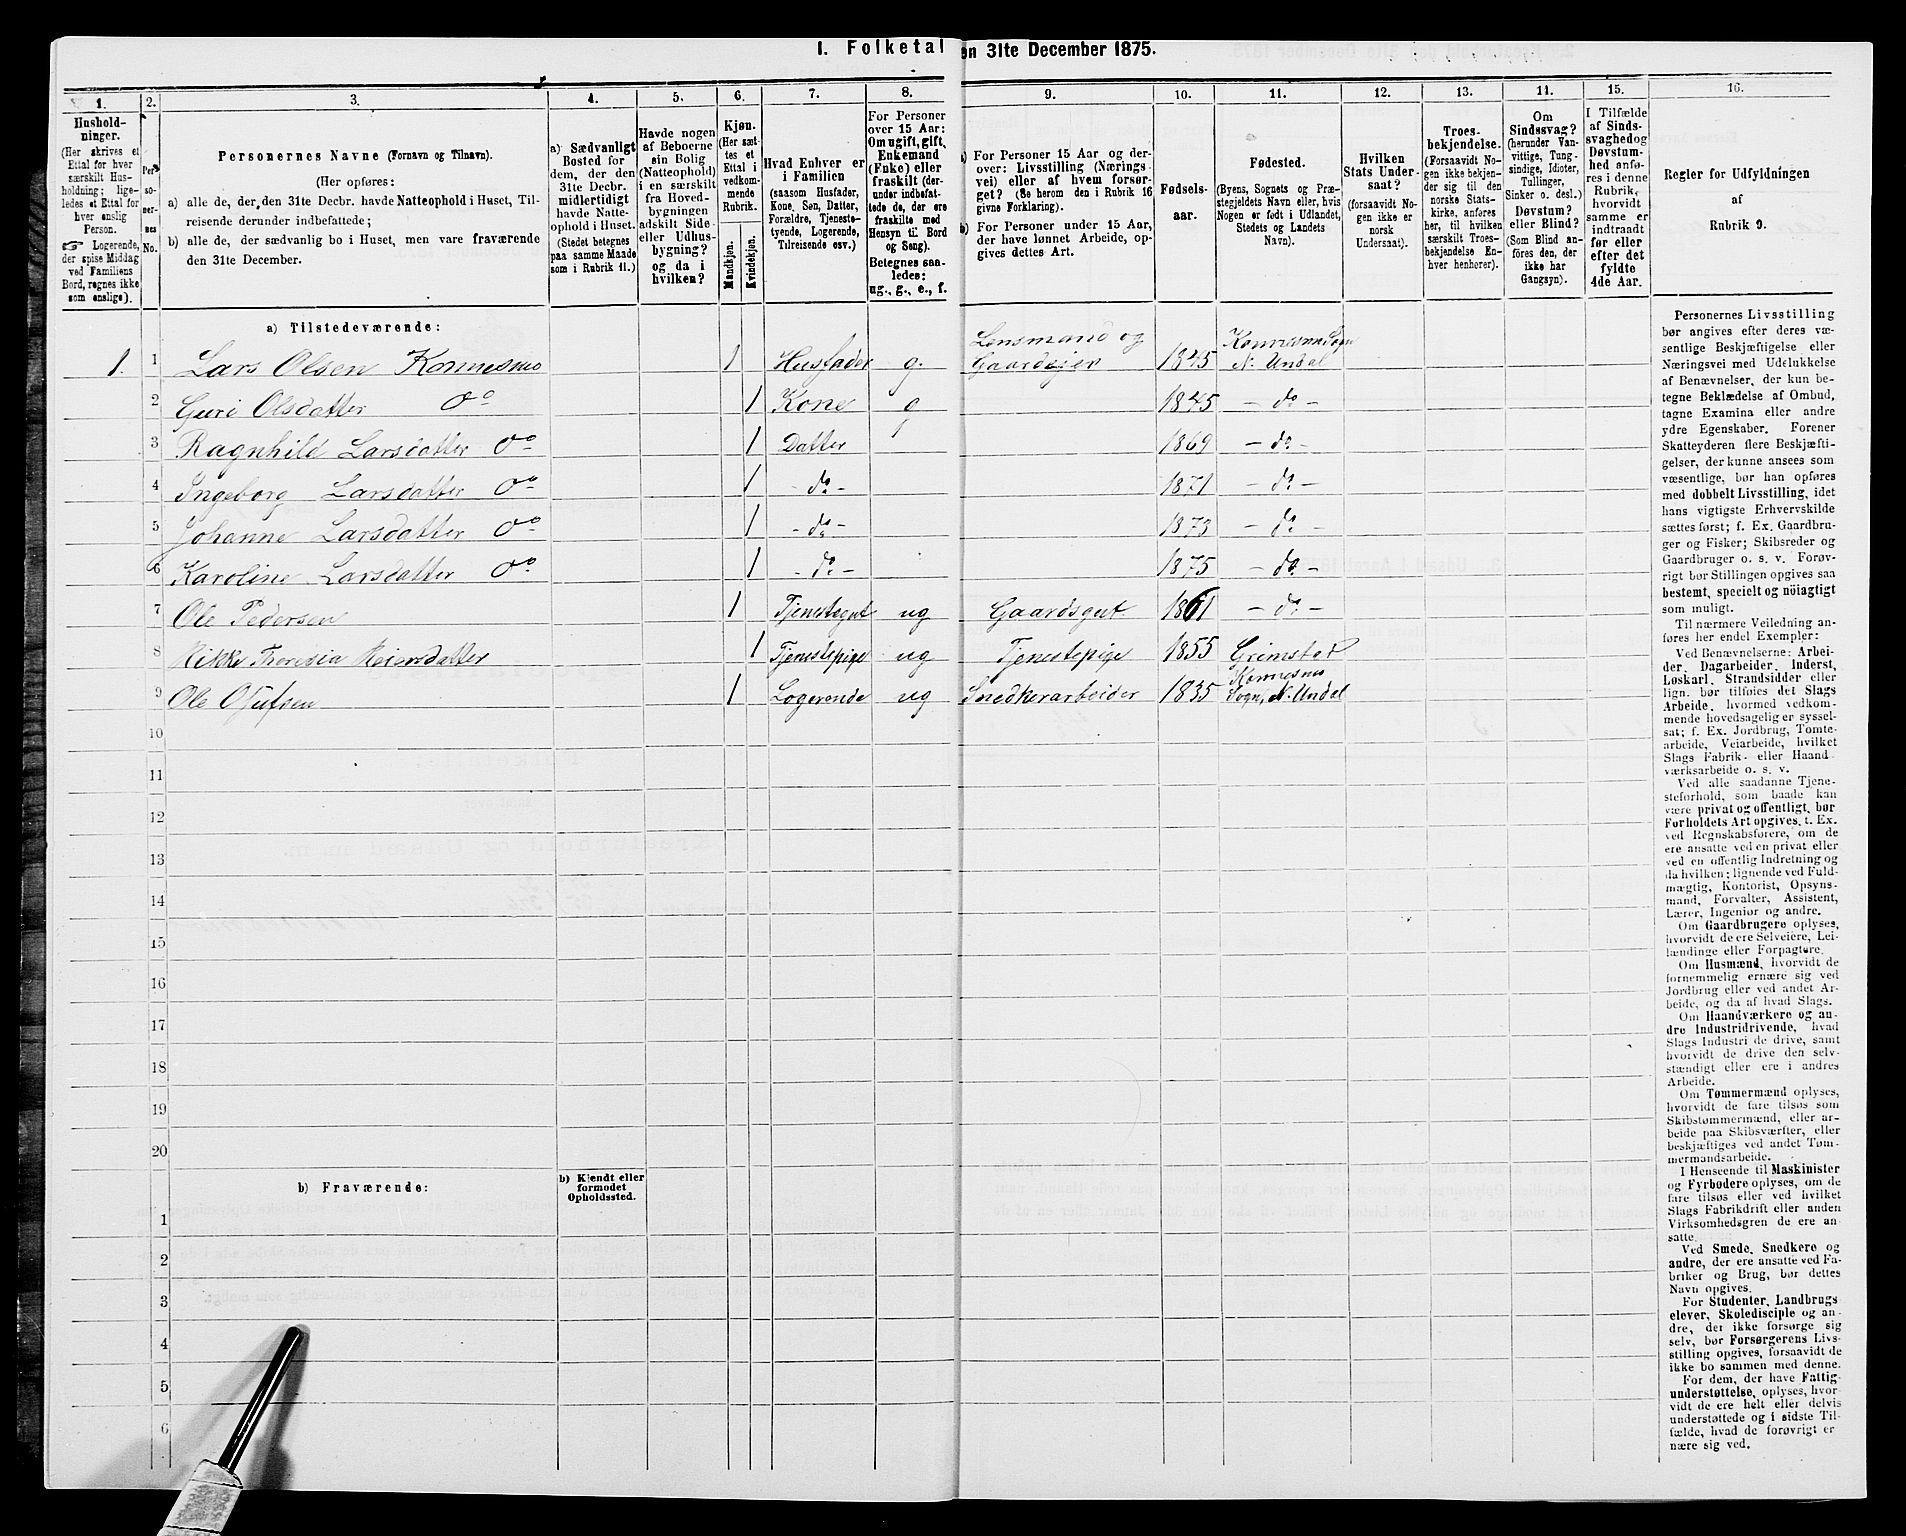 I. Folketal
en 31te December 1875.
1.
Hushold-
ninger.
(Her skrives et
Ettal for hver
særskilt Hus-
holdning; lige-
ledes et Ettal for
hver enslig
Person.
Logerende,
der spise Middag
ved Familiens
Bord, regnes ikke
som enslige).
2.
Per-
so-
ner-
nes
No.
3.
Personernes Navne (Fornavn og Tilnavn).
(Her opføres:
a) alle de, der den 31te Decbr. havde Natteophold i Huset, Til-
reisende derunder indbefattede;
b) alle de, der sædvanlig bo i Huset, men vare fraværende
den 31te December.
4.
a) Sædvanligt
Bosted for
dem, der den
31te Decbr.
midlertidigt
havde Natte-
ophold i Huset.
(Stedet betegnes
paa samme Maade
som i Rubrik 11.)
5.
Havde nogen
af Beboerne
sin Bolig
(Natteophold)
i en særskilt
fra Hoved-
bygningen
adskilt Side-
eller Udhus-
bygning?
og da i
hvilken?
6.
Kjøn.
(Her sæt-
tes et
Ettal i
vedkom-
mende
Rubrik.
Mandkjøn.
Kvindekjøn.
7.
Hvad Enhver er
i Familien
(saasom Husfader,
Kone, Søn, Datter,
Forældre, Tjeneste-
tyende, Logerende,
Tilreisende osv.)
8.
For Personer
over 15 Aar:
Om ugift, gift,
Enkemand
(Enke) eller
fraskilt (der-
under indbefat-
tede de, der ere
fraskilte med
Hensyn til Bord
og Seng).
Betegnes saa-
ledes:
ug., g., e., f.
9.
a) For Personer 15 Aar og der-
over: Livsstilling (Nærings-
vei) eller af hvem forsør-
get? (Se herom den i Rubrik 16
givne Forklaring).
b) For Personer under 15 Aar,
der have lønnet Arbeide, op-
gives dettes Art.
10.
Fødsels-
aar.
11.
Fødested.
(Byens, Sognets og Præ-
stegjeldets Navn eller, hvis
Nogen er født i Udlandet,
Stedets og Landets
Navn).
12.
Hvilken
Stats Under-
saat?
(forsaavidt No-
gen ikke er
norsk
Undersaat).
13.
Troes-
bekjendelse.
(Forsaavidt No-
gen ikke bekjen-
der sig til den
norske Stats-
kirke, anføres
her, til hvilken
særskilt Troes-
bekjendelse En-
hver henhører).
14.
Om
Sindssvag?
(herunder Van-
vittige, Tung-
sindige, Idioter,
Tullinger,
Sinker o. desl.)
Døvstum?
eller Blind?
(Som Blind an-
føres den, der
ikke har
Gangsyn).
15.
I Tilfælde
af Sinds-
svaghed og
Døvstum-
hed anfø-
res i denne
Rubrik,
hvorvidt
samme er
indtraadt
før eller
efter det
fyldte
4de Aar.
16.
Regler for Udfyldningen
af
Rubrik 9.
a) Tilstedeværende:
1. 1 Lars Olsen Konnesmo 1 Husfader g. Lensmand og Gaardeier 1845 Konnesmo Sogn N. Undal
2 Guri Olsdatter do 1 Kone g 1845 – do –
3 Ragnhild Larsdatter do 1 Datter 1869 – do –
4 Ingeborg Larsdatter do 1 – do – 1871 – do –
5 Johanne Larsdatter do 1 – do – 1873 – do –
6 Karoline Larsdatter do 1 – do – 1875 – do –
7 Ole Pedersen 1 Tjenestegut ug Gaardsgut 1861 – do –
8 Theresia 1 Tjenestepige ug Tjenestepige 1855 Grimstad
9 Ole 1 Logerende ug Snedkerarbeider 1835 Konnesmo Sogn, N. Undal
10
11
12
13
14
15
16
17
18
19
20
b) Fraværende:
b) Kjendt eller
formodet
Opholdssted.
1
2
3
4
5
6
Personernes Livsstilling
bør angives efter deres væ-
sentlige Beskjæftigelse eller
Næringsvei med Udelukkelse
af Benævnelser, der kun be-
tegne Beklædelse af Ombud,
tagne Examina eller andre
ydre Egenskaber. Forener
Skatteyderen flere Beskjæfti-
gelser, der kunne ansees som
væsentlige, bør han opføres
med dobbelt Livsstilling, idet
hans vigtigste Erhvervskilde
sættes først; f. Ex. Gaardbru-
ger og Fisker; Skibsreder og
Gaardbruger o. s. v. Forøv-
rigt bør Stillingen opgives saa
bestemt, specielt og nøiagtigt
som muligt.
Til nærmere Veiledning an-
føres her endel Exempler:
Ved Benævnelserne: Arbei-
der, Dagarbeider, Inderst,
Løskarl, Strandsidder eller
lign. bør tilføies det Slags
Arbeide, hvormed vedkom-
mende hovedsagelig er syssel-
sat; f. Ex. Jordbrug, Tomte-
arbeide, Veiarbeide, hvilket
Slags Fabrik- eller Haand-
værksarbeide o. s. v.
Ved alle saadanne Tjene-
steforhold, som baade kan
være privat og offentligt, bør
Forholdets Art opgives, t. Ex.
ved Regnskabsførere, om de
ere ansatte ved en privat eller
ved en offentlig Indretning og
da hvilken; lignende ved Fuld-
mægtig, Kontorist, Opsyns-
mand, Forvalter, Assistent,
Lærer, Ingeniør og andre.
Om Gaardbrugere oplyses,
hvorvidt de ere Selveiere, Lei-
lændinge eller Forpagtere.
Om Husmænd, hvorvidt de
fornemmelig ernære sig ved
Jordbrug eller ved andet Ar-
beide, og da af hvad Slags.
Om Haandværkere og an-
dre Industridrivende, hvad
Slags Industri de drive, samt
hvorvidt de drive den selv-
stændigt eller ere i andres
Arbeide.
Om Tømmermænd oplyses,
hvorvidt de fare tilsøs som
Skibstømmermænd, eller ar-
beide paa Skibsværfter, eller
beskjæftiges ved andet Tøm-
mermandsarbeide.
I Henseende til Maskinister
og Fyrbødere oplyses, om de
fare tilsøs eller ved hvilket
Slags Fabrikdrift eller anden
Virksomhedsgren de ere an-
satte.
Ved Smede, Snedkere og
andre, der ere ansatte ved Fa-
briker og Brug, bør dettes
Navn opgives.
For Studenter, Landbrugs-
elever, Skoledisciple og an-
dre, der ikke forsørge sig
selv, bør Forsørgerens Livs-
stilling opgives, forsaavidt de
ikke bo sammen med denne.
For dem, der have Fattig-
understøttelse, oplyses, hvor-
vidt de ere helt eller delvis
understøttede og i sidste Til-
fælde, hvad de forøvrigt er-
nære sig ved.